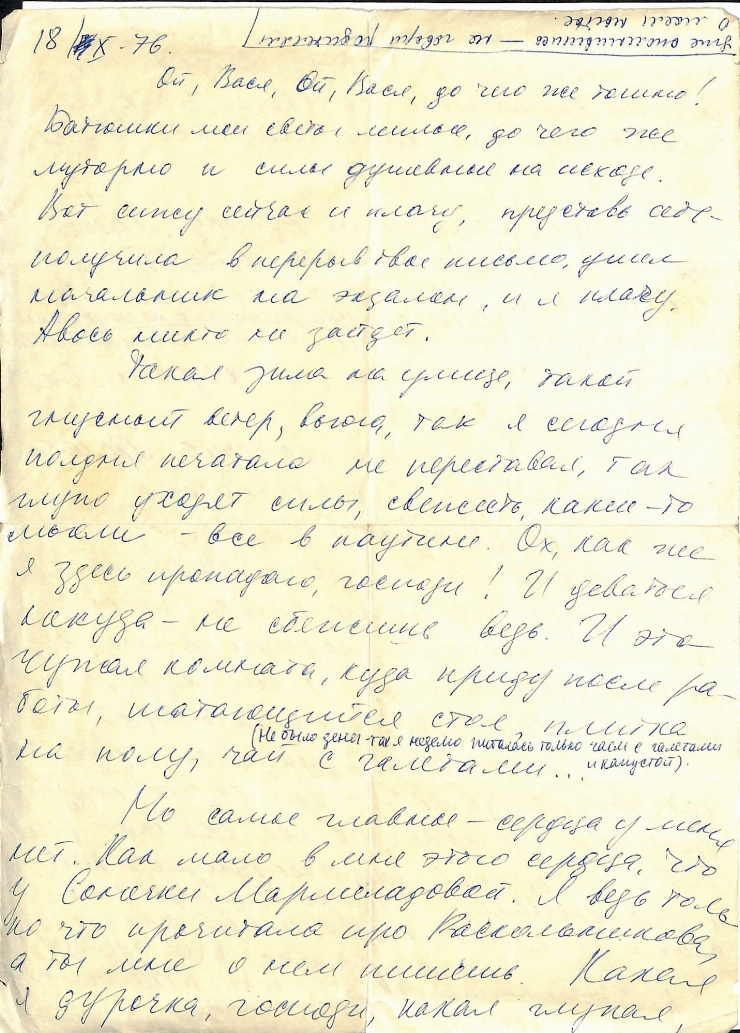 18/X-76.
уже опомнившись — не говори родителям
о моем нытье.
Ой, Вася, Ой, Вася, до чего же тошно!
Батюшки мои светы милые, до чего же
муторно и силы душевные на исходе.
Вот сижу сейчас и плачу, представь себе –
получила в перерыв твое письмо, ушел
начальник на экзамен, и я плачу.
Авось никто не зайдет.
Такая зима на улице, такой
гнусный ветер, вьюга, так я сегодня
полдня печатала не переставая, так
глупо уходят силы, свежесть, какие-то
мысли – все в паутине. Ох, как же
я здесь пропадаю, господи! И деваться
некуда – не сбежишь ведь. И эта
чужая комната, куда приду после ра-
боты, шатающийся стол, плитка
(Не было денег – так я неделю питалась только чаем с галетами
на полу, чай с галетами... и капустой).
Но самое главное – сердца у меня
нет. Как мало в мне этого сердца, что
у Сонечки Мармеладовой. Я ведь толь
ко что прочитала про Раскольникова,
а ты мне о нем пишешь. Какая
я дурочка, господи, какая глупая,